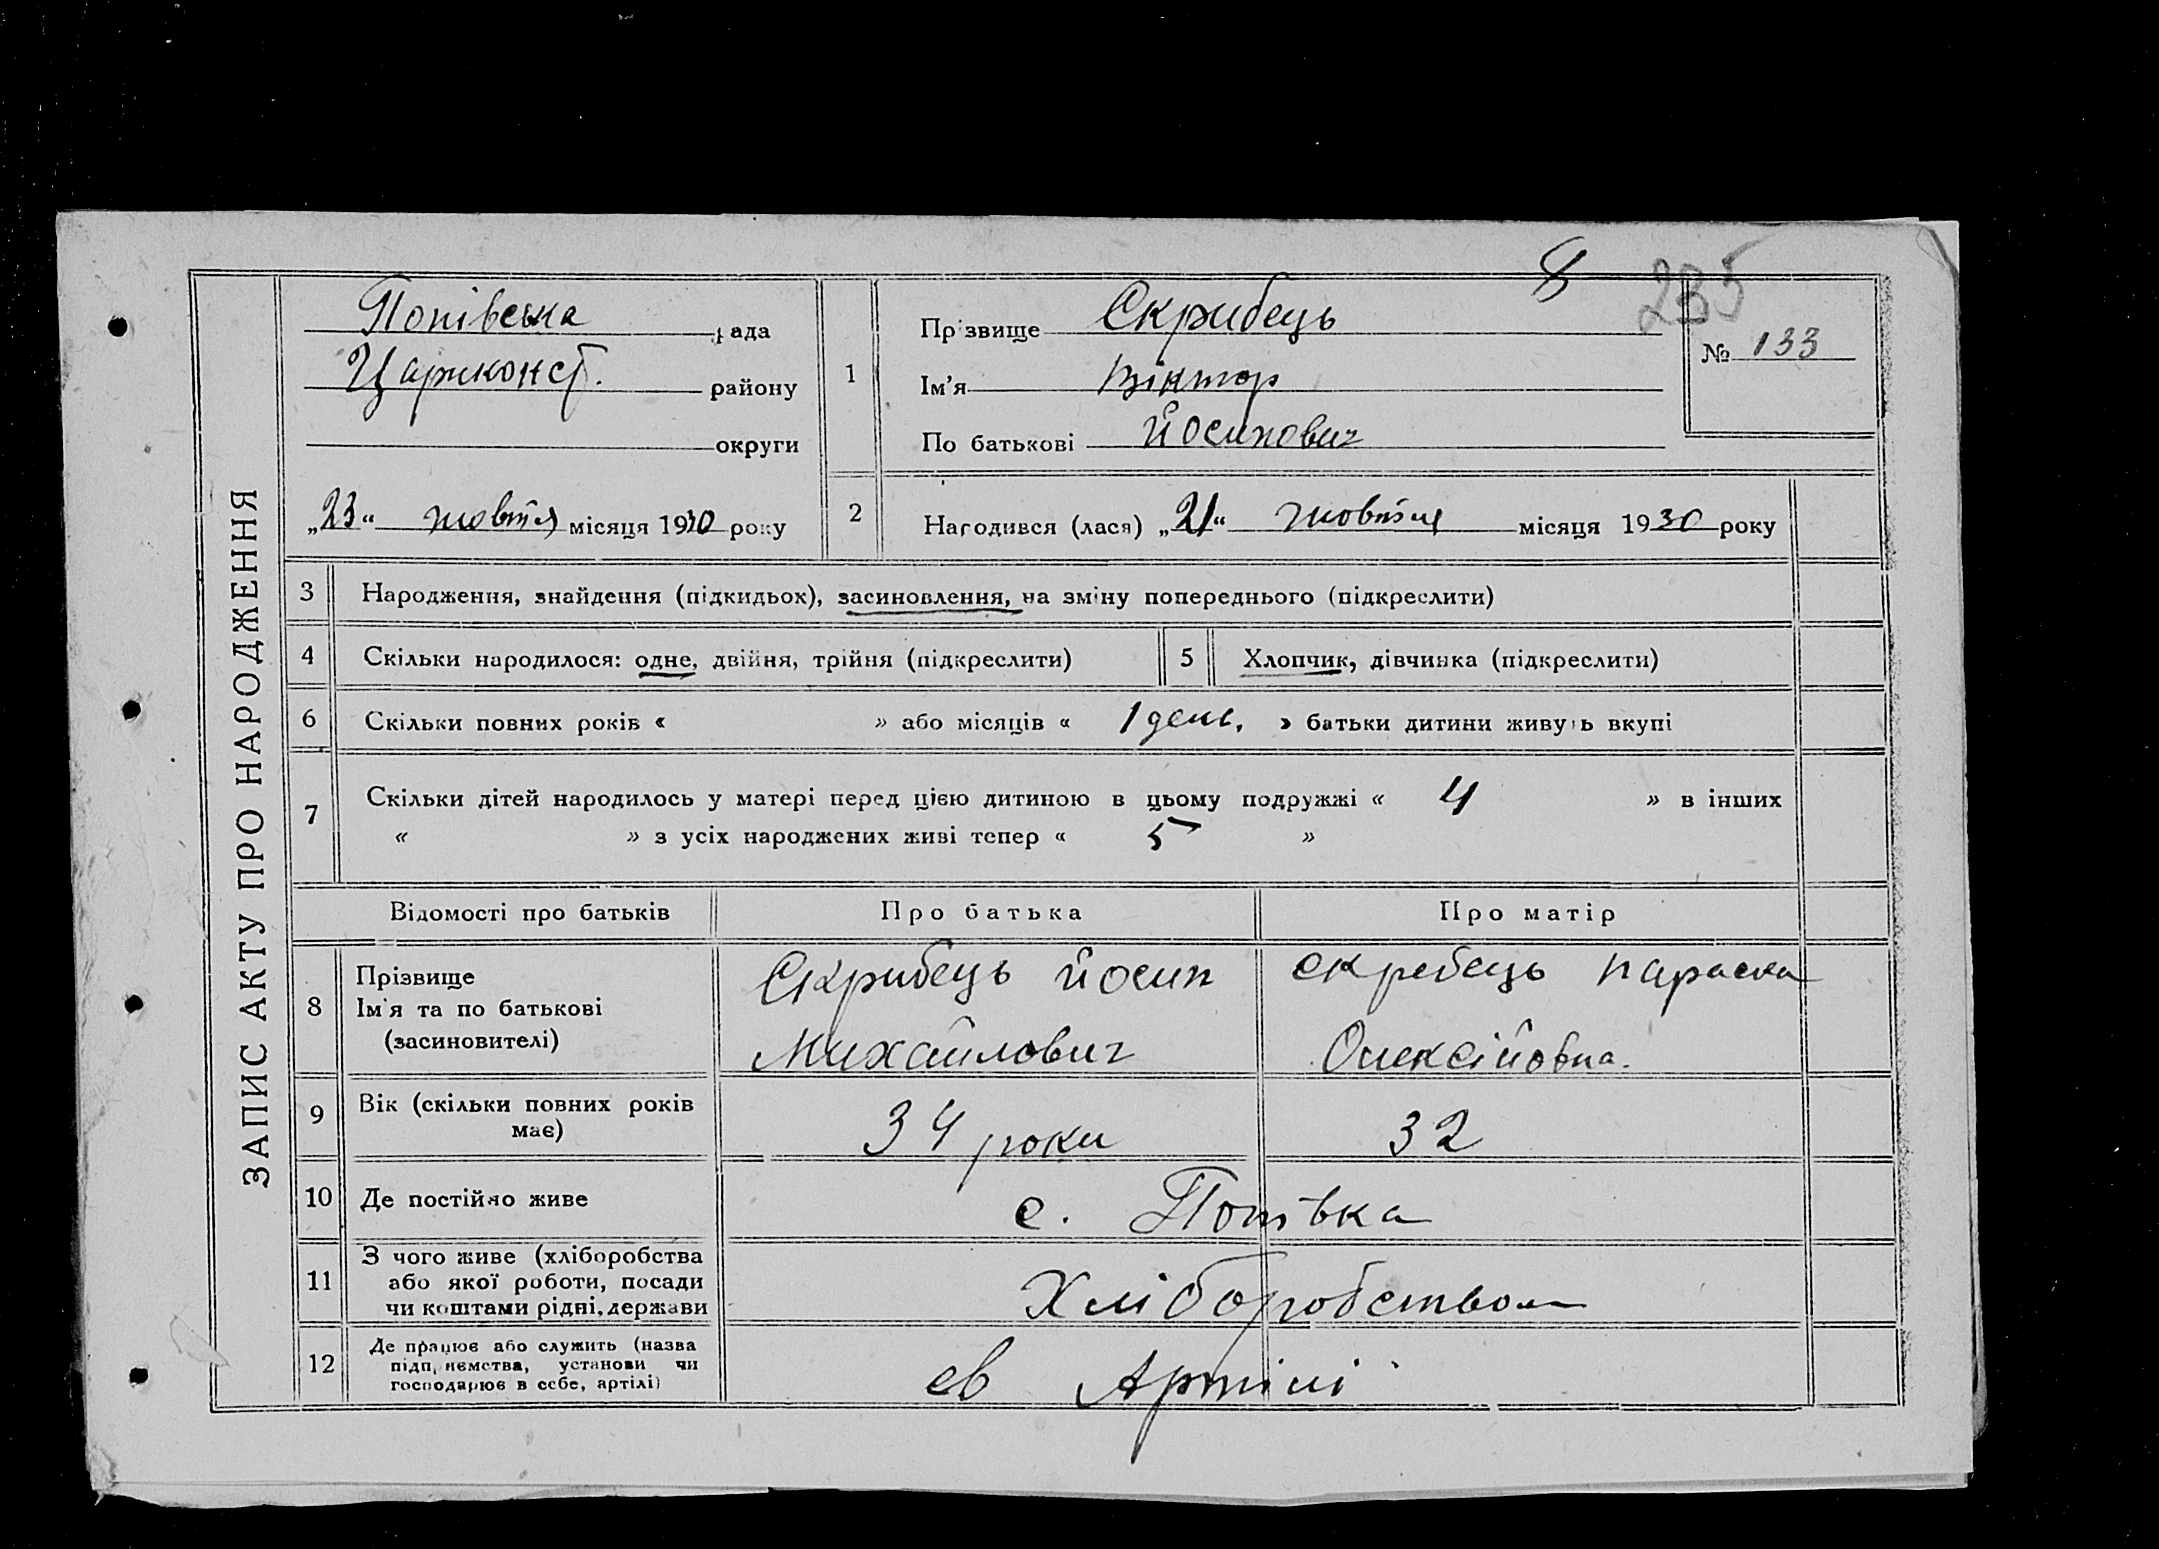 235
ЗАПИС АКТУ ПРО НАРОДЖЕННЯ
Попівська рада
Цариконст. району
округи
„23“ жовтня місяця 1930 року
1
Прізвище Скрибець
Ім'я Віктор
По батькові Йосипович
№ 133
2 Народився (лася) „21“ жовтня місяця 1930 року
3 Народження, знайдення (підкидьох), засиновлення, на зміну попереднього (підкреслити)
4 Скільки народилося: одне, двійня, трійня (підкреслити) 5 Хлопчик, дівчинка (підкреслити)
6 Скільки повних років « » або місяців « 1 день. » батьки дитини живуть вкупі
7 Скільки дітей народилось у матері перед цією дитиною в цьому подружжі « 4 » в інших
« » з усіх народжених живі тепер « 5 »
Відомості про батьків Про батька Про матір
8 Прізвище
Ім'я та по батькові
(засиновителі)
Скрибець Йосип
Михайлович
Скребець Параска
Олексійовна.
9 Вік (скільки повних років
має)
34 роки
32
10 Де постійно живе с. Попівка
11 З чого живе (хліборобства
або якої роботи, посади
чи коштами рідні, держави
Хліборобством
12 Де працює або служить (назва
підприємства, установи чи
господарює в себе, артілі)
ев Артілі